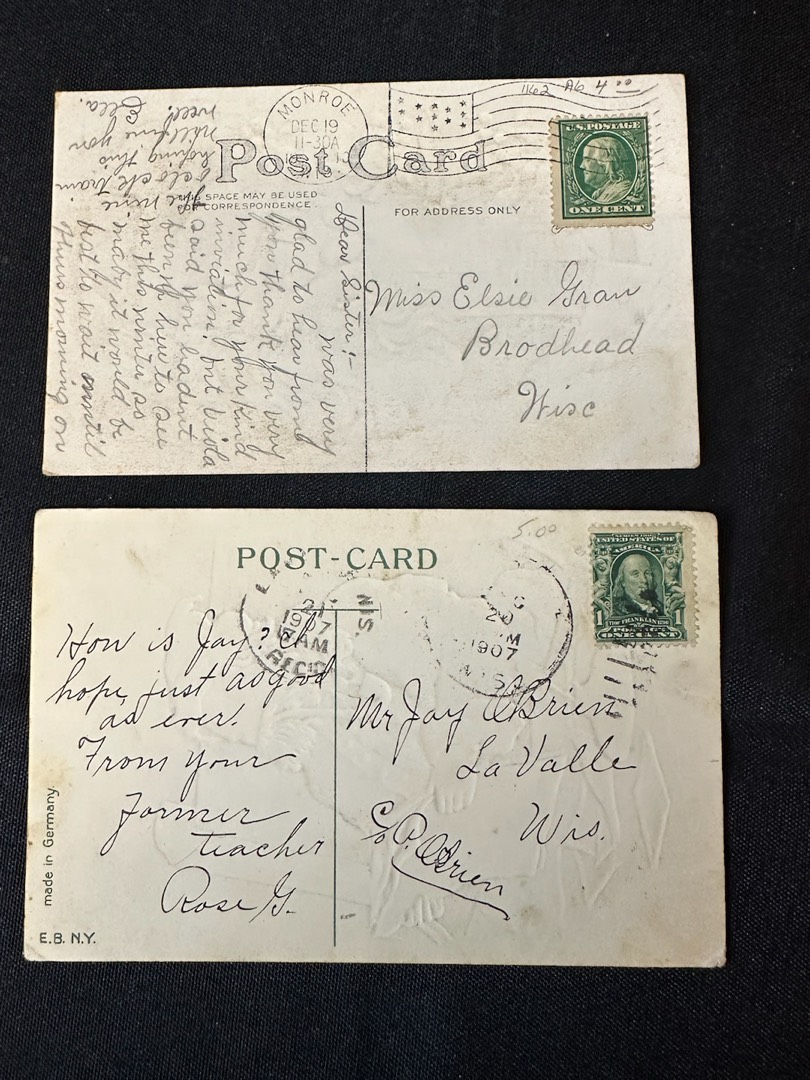 MONROE
DEC 19
11-30A
1162 A6 4.00
U.S. POSTAGE
ONE CENT
Post Card
THIS SPACE MAY BE USED
FOR CORRESPONDENCE.
FOR ADDRESS ONLY
Miss Elsie Gran
Brodhead
Wisc
Dear Sister:-
was very
glad to hear from
you thank you very
much for your kind
inviation. but Viola
said you hadent
been up here to see
me this winter so
maby it would be
best to wait untill
thurs morning on
the nine
oclock train
hoping this
will fine you
well.
Ella.
5.00
POST-CARD
UNITED STATES OF
AMERICA
1 1
FRANKLIN
POSTAGE
ONE CENT
WIS.
21
1907
AM
REC'D
20
M
1907
WIS
How is Jay? I
hope just as good
as ever!
From your
former
teacher
Rose G.
Mr Jay O'Brien
La Valle
Wis.
c/o P. O'Brien
made in Germany.
E.B. N.Y.